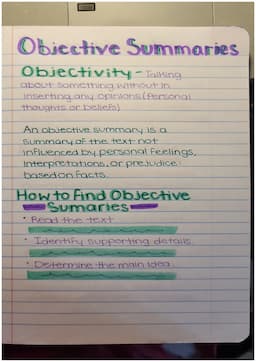 Objective Summaries
Objectivity - Talking
about something without in
inserting any opinions (Personal
thoughts or beliefs)
An objective summary is a
summary of the text not
influenced by personal feelings,
interpretations, or prejudice:
based on facts.
How to find Objective
Sumaries
• Read the text
• Identify supporting details
• Determine the main idea.